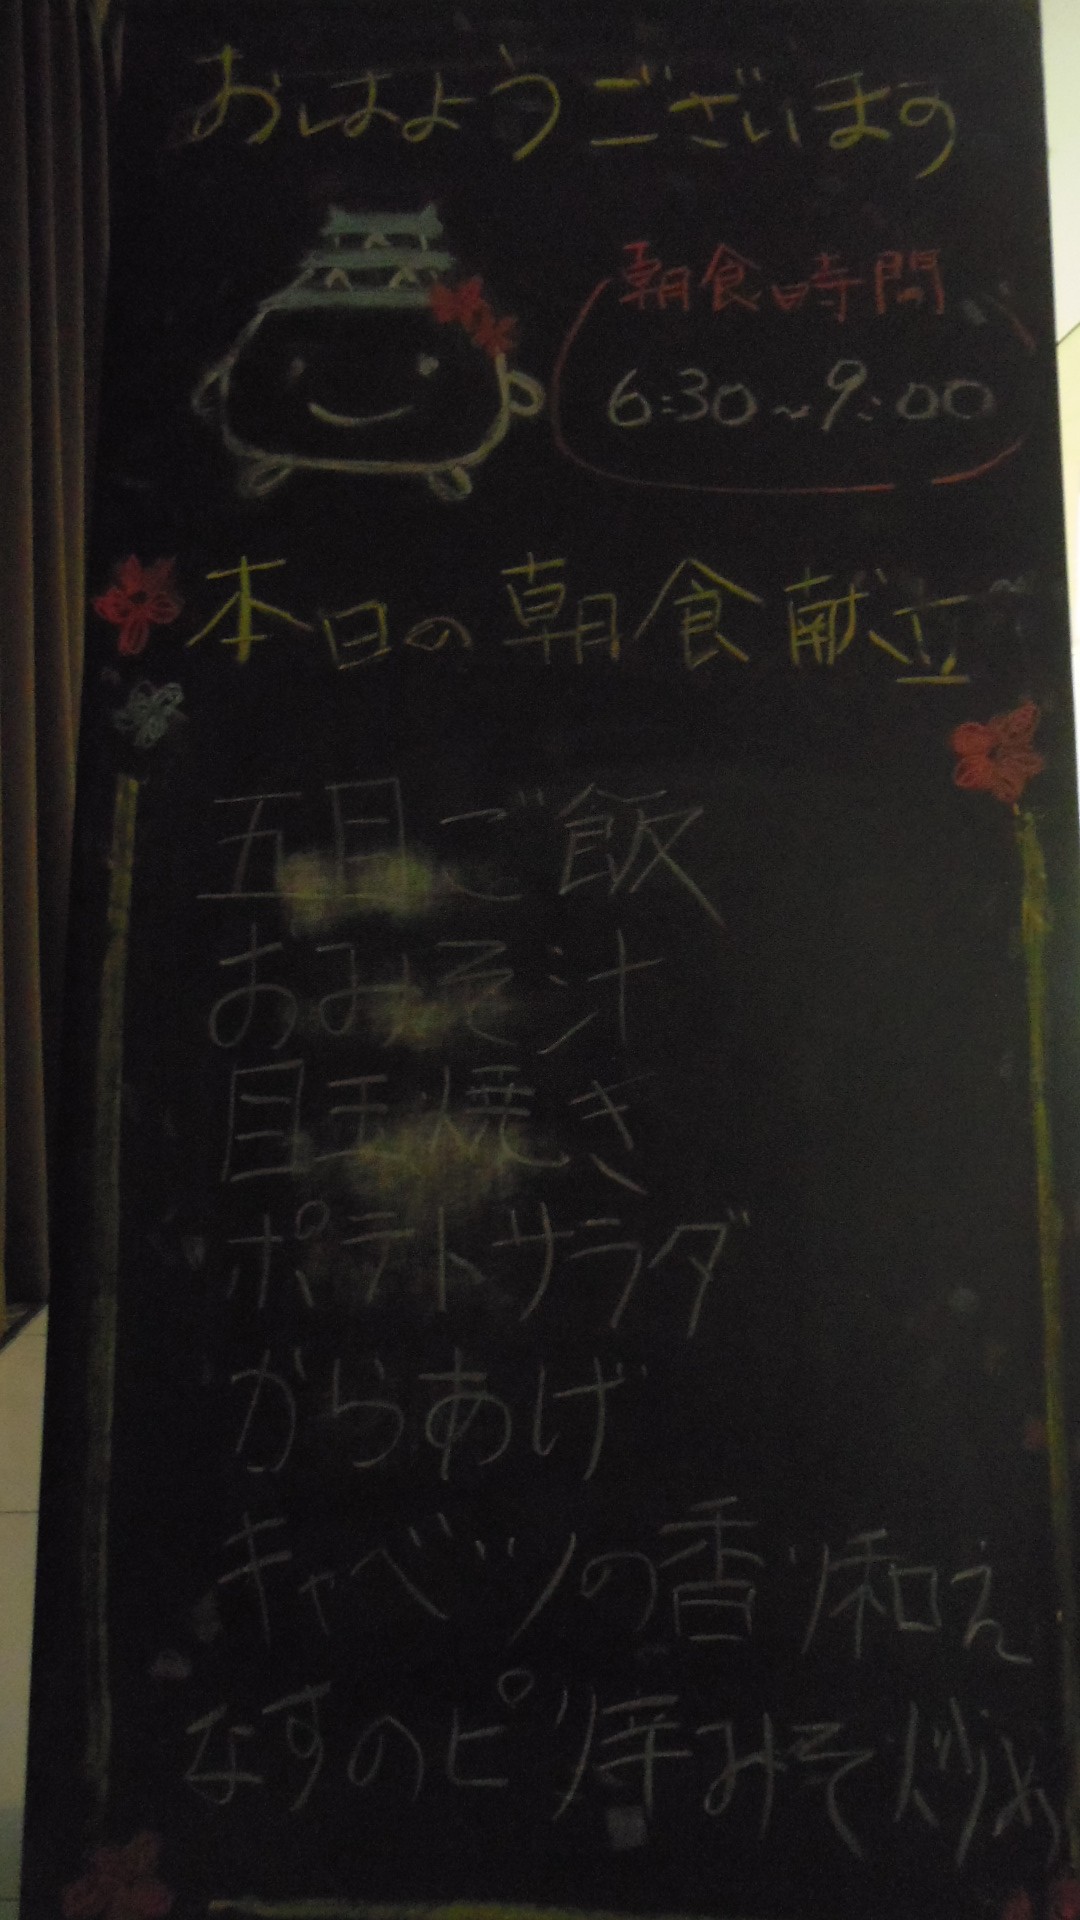 おはようございます
朝食時間
6:30～9:00
本日の朝食献立
五目ご飯
おみそ汁
目玉焼き
ポテトサラダ
からあげ
キャベツの香り和え
なすのピリ辛みそ炒め